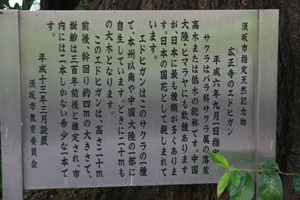 須坂市指定天然記念物
広正寺のエドヒガン
平成六年九月一日指定
サクラはバラ科サクラ属の落葉
高木または低木の総称です。中国
大陸・ヒマラヤにも数種あります
が、日本に最も種類が多くありま
す。日本の国花として親しまれて
います。
エドヒガンはこのサクラの一種
で、本州以南や中国大陸の一部に
自生しています。ときに二十mも
の大木となります。
このエドヒガンは、高さ二十m
前後、幹回り約四mの大きさで、
樹齢は三百年前後と推定され、市
内には二本しかない希少な一本で
す。
平成十三年三月設置
須坂市教育委員会